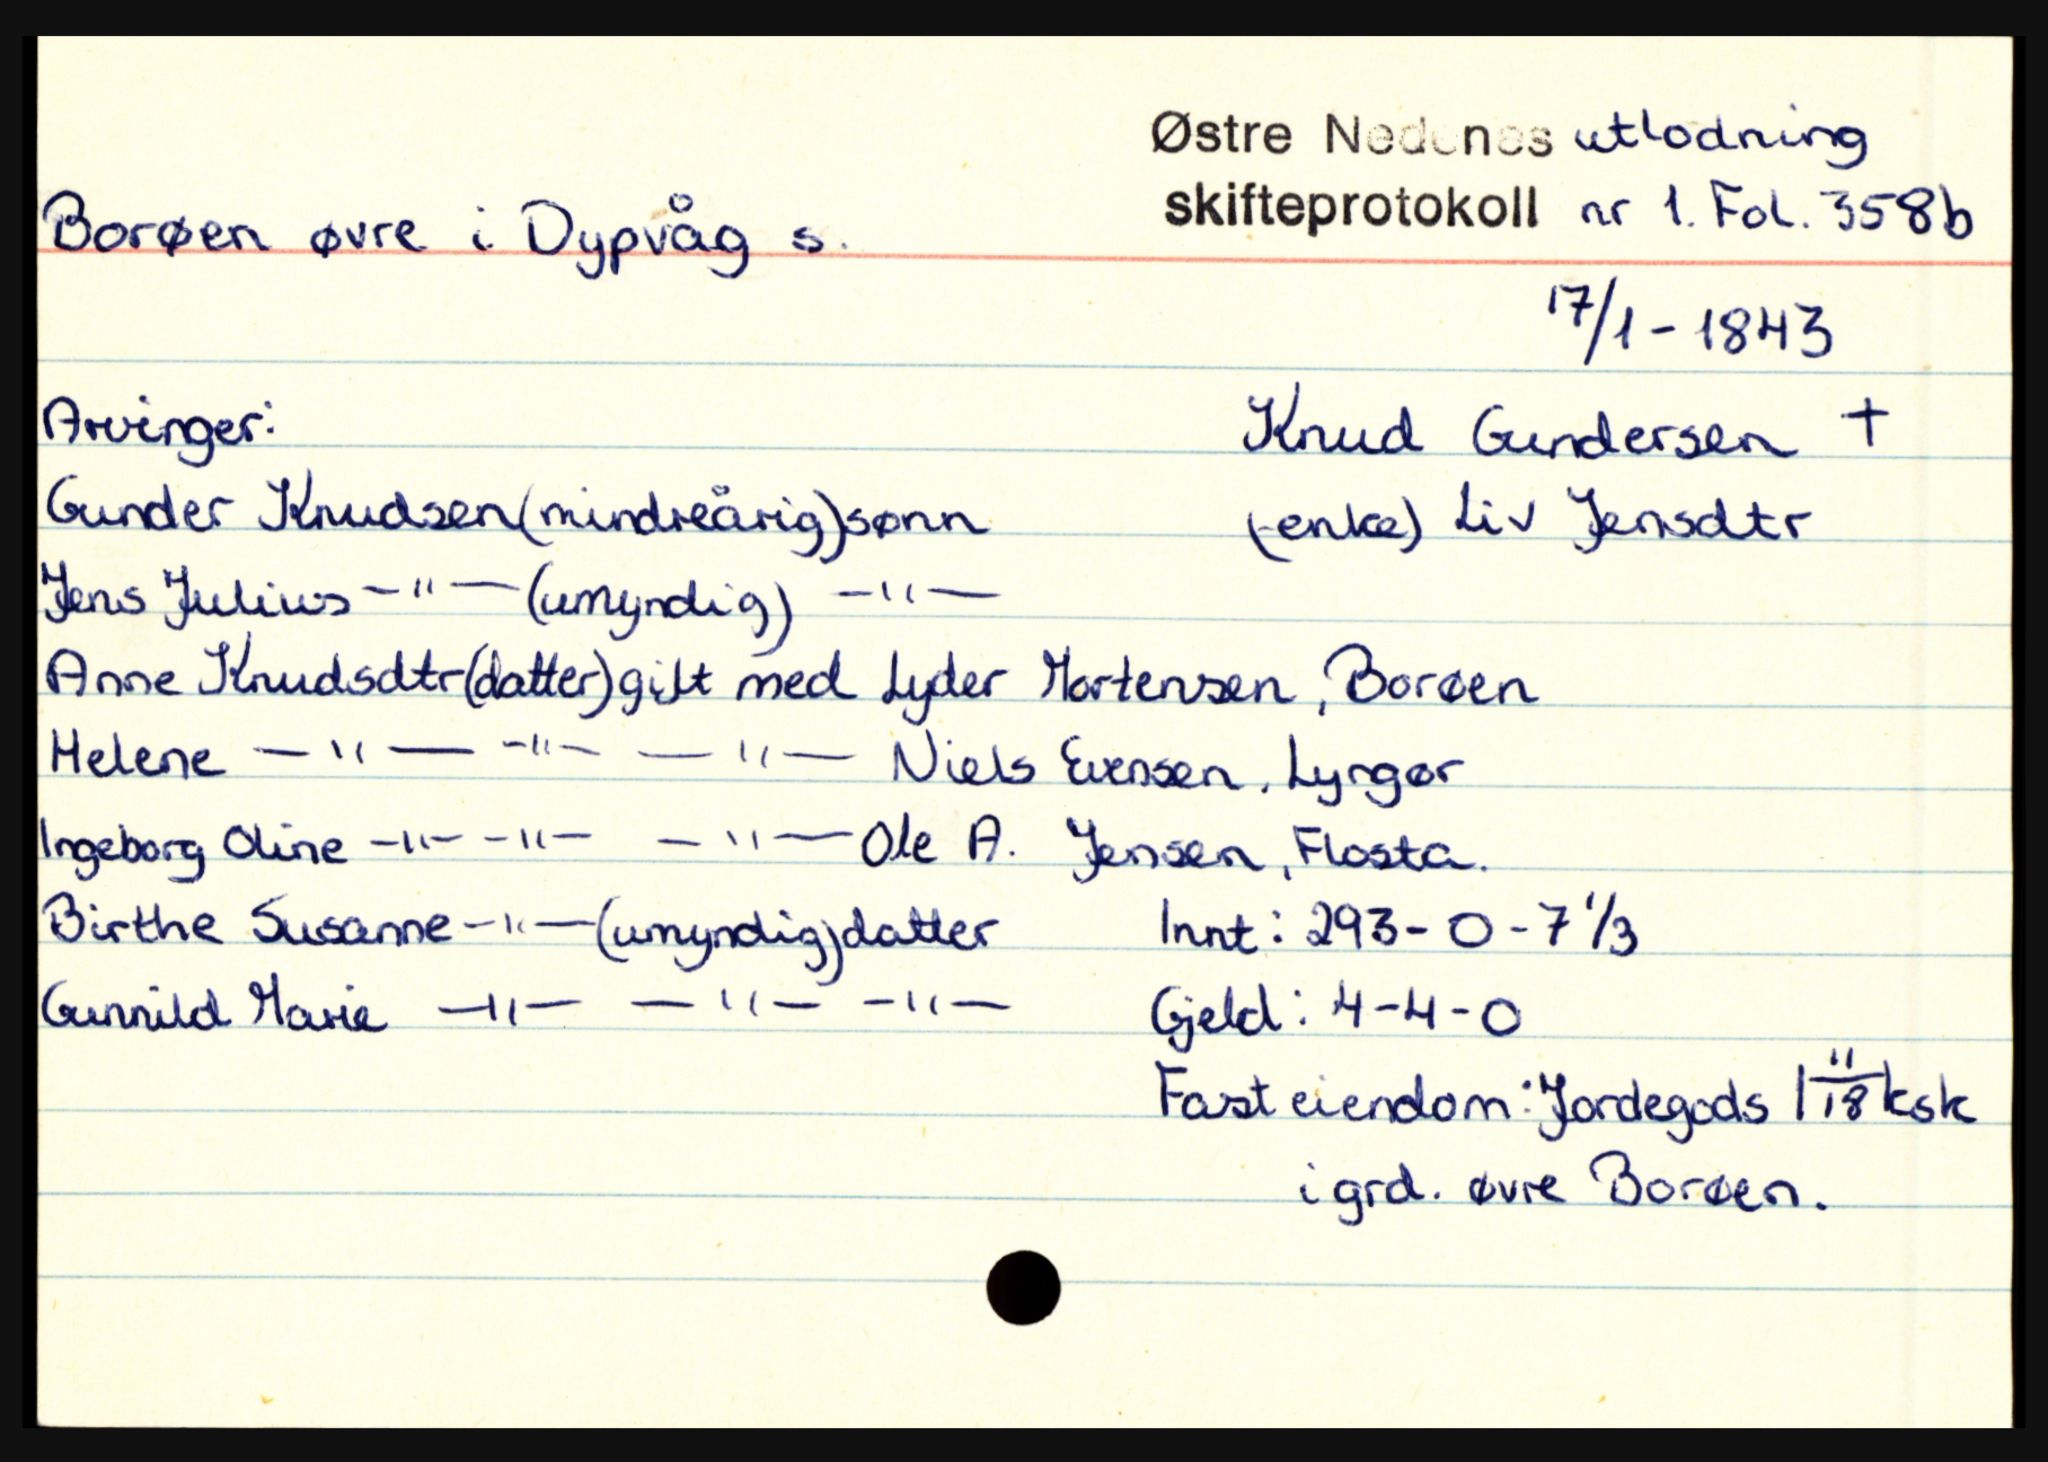 Østre Nedenes utlodning
skifteprotokoll nr 1. Fol. 358b
Borøen øvre i Dypvåg s.
17/1 - 1843
Arvinger:
Knud Gundersen +
Gunder Knudsen (mindreårig) sønn
(enke) Liv Jensdtr
Jens Julius -"- (umyndig) -"-
Anne Knudsdtr (datter) gift med Lyder Mortensen, Borøen
Helene -"- -"- -"- Niels Evensen, Lyngør
Ingeborg Oline -"- -"- -"- Ole A. Jensen, Flosta.
Birthe Susanne -"- (umyndig) datter
Innt: 293 - 0 - 7 1/3
Gunnild Marie -"- -"- -"-
Gjeld: 4-4-0
Fast eiendom: Jordegods 1 11/18 ksk
i grd. øvre Borøen.